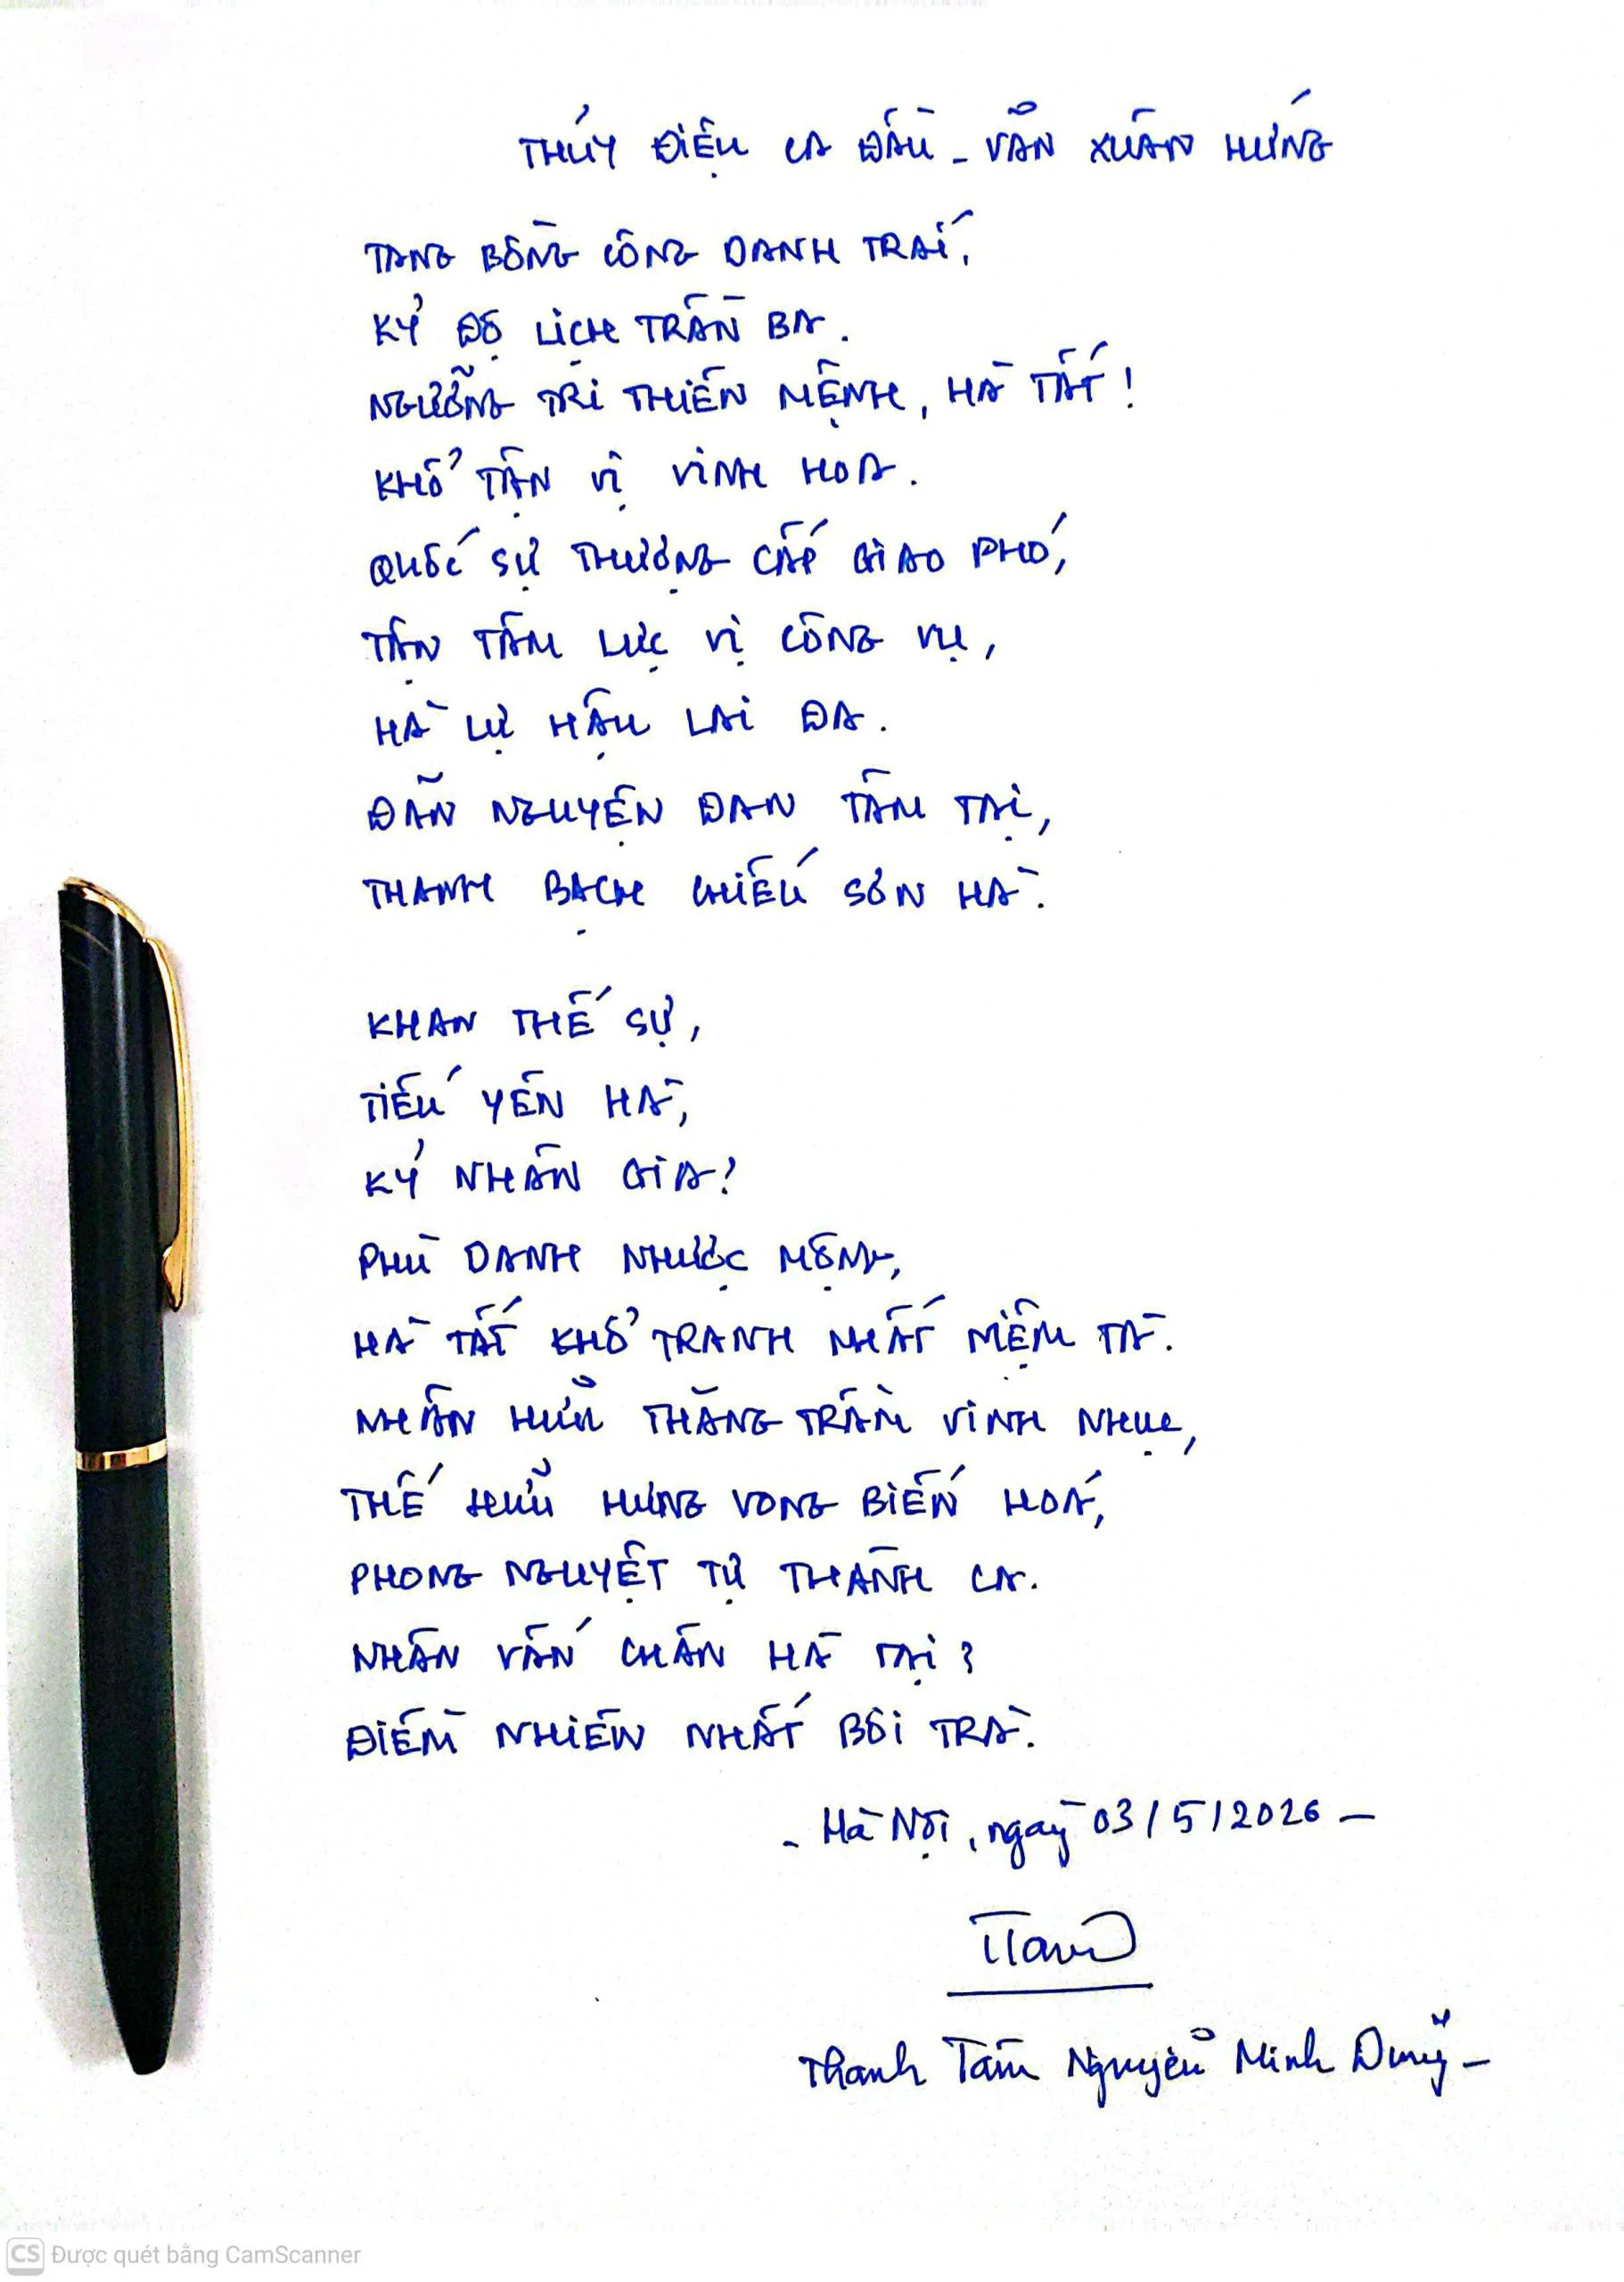 THỦY ĐIỆU CA ĐẦU - VÃN XUÂN HỨNG
TANG BỒNG CÔNG DANH TRÁI,
KỶ ĐỘ LỊCH TRẦN BA.
NGƯỠNG TRI THIÊN MỆNH, HÀ TẤT!
KHỔ TẬN VỊ VINH HOA.
QUỐC SỰ THƯỢNG CẤP GIAO PHÓ,
TẬN TÂM LỰC VỊ CÔNG VỤ,
HÀ LỰ HẬU LAI ĐA.
ĐÃN NGUYỆN ĐAN TÂM TẠI,
THANH BẠCH CHIẾU SƠN HÀ.
KHAN THẾ SỰ,
TIẾU YÊN HÀ,
KỶ NHÂN GIA?
PHÙ DANH NHƯỢC MỘNG,
HÀ TẤT KHỔ TRANH NHẤT NIỆM TÀ.
NHÂN HỮU THĂNG TRẦM VINH NHỤC,
THẾ HỮU HƯNG VONG BIẾN HOÁ,
PHONG NGUYỆT TỰ THÀNH CA.
NHÂN VẤN CHÂN HÀ TẠI?
ĐIỀM NHIÊN NHẤT BÔI TRÀ.
- Hà Nội, ngày 03/5/2026 -
Thanh Tâm Nguyễn Minh Duy -
CS Được quét bằng CamScanner